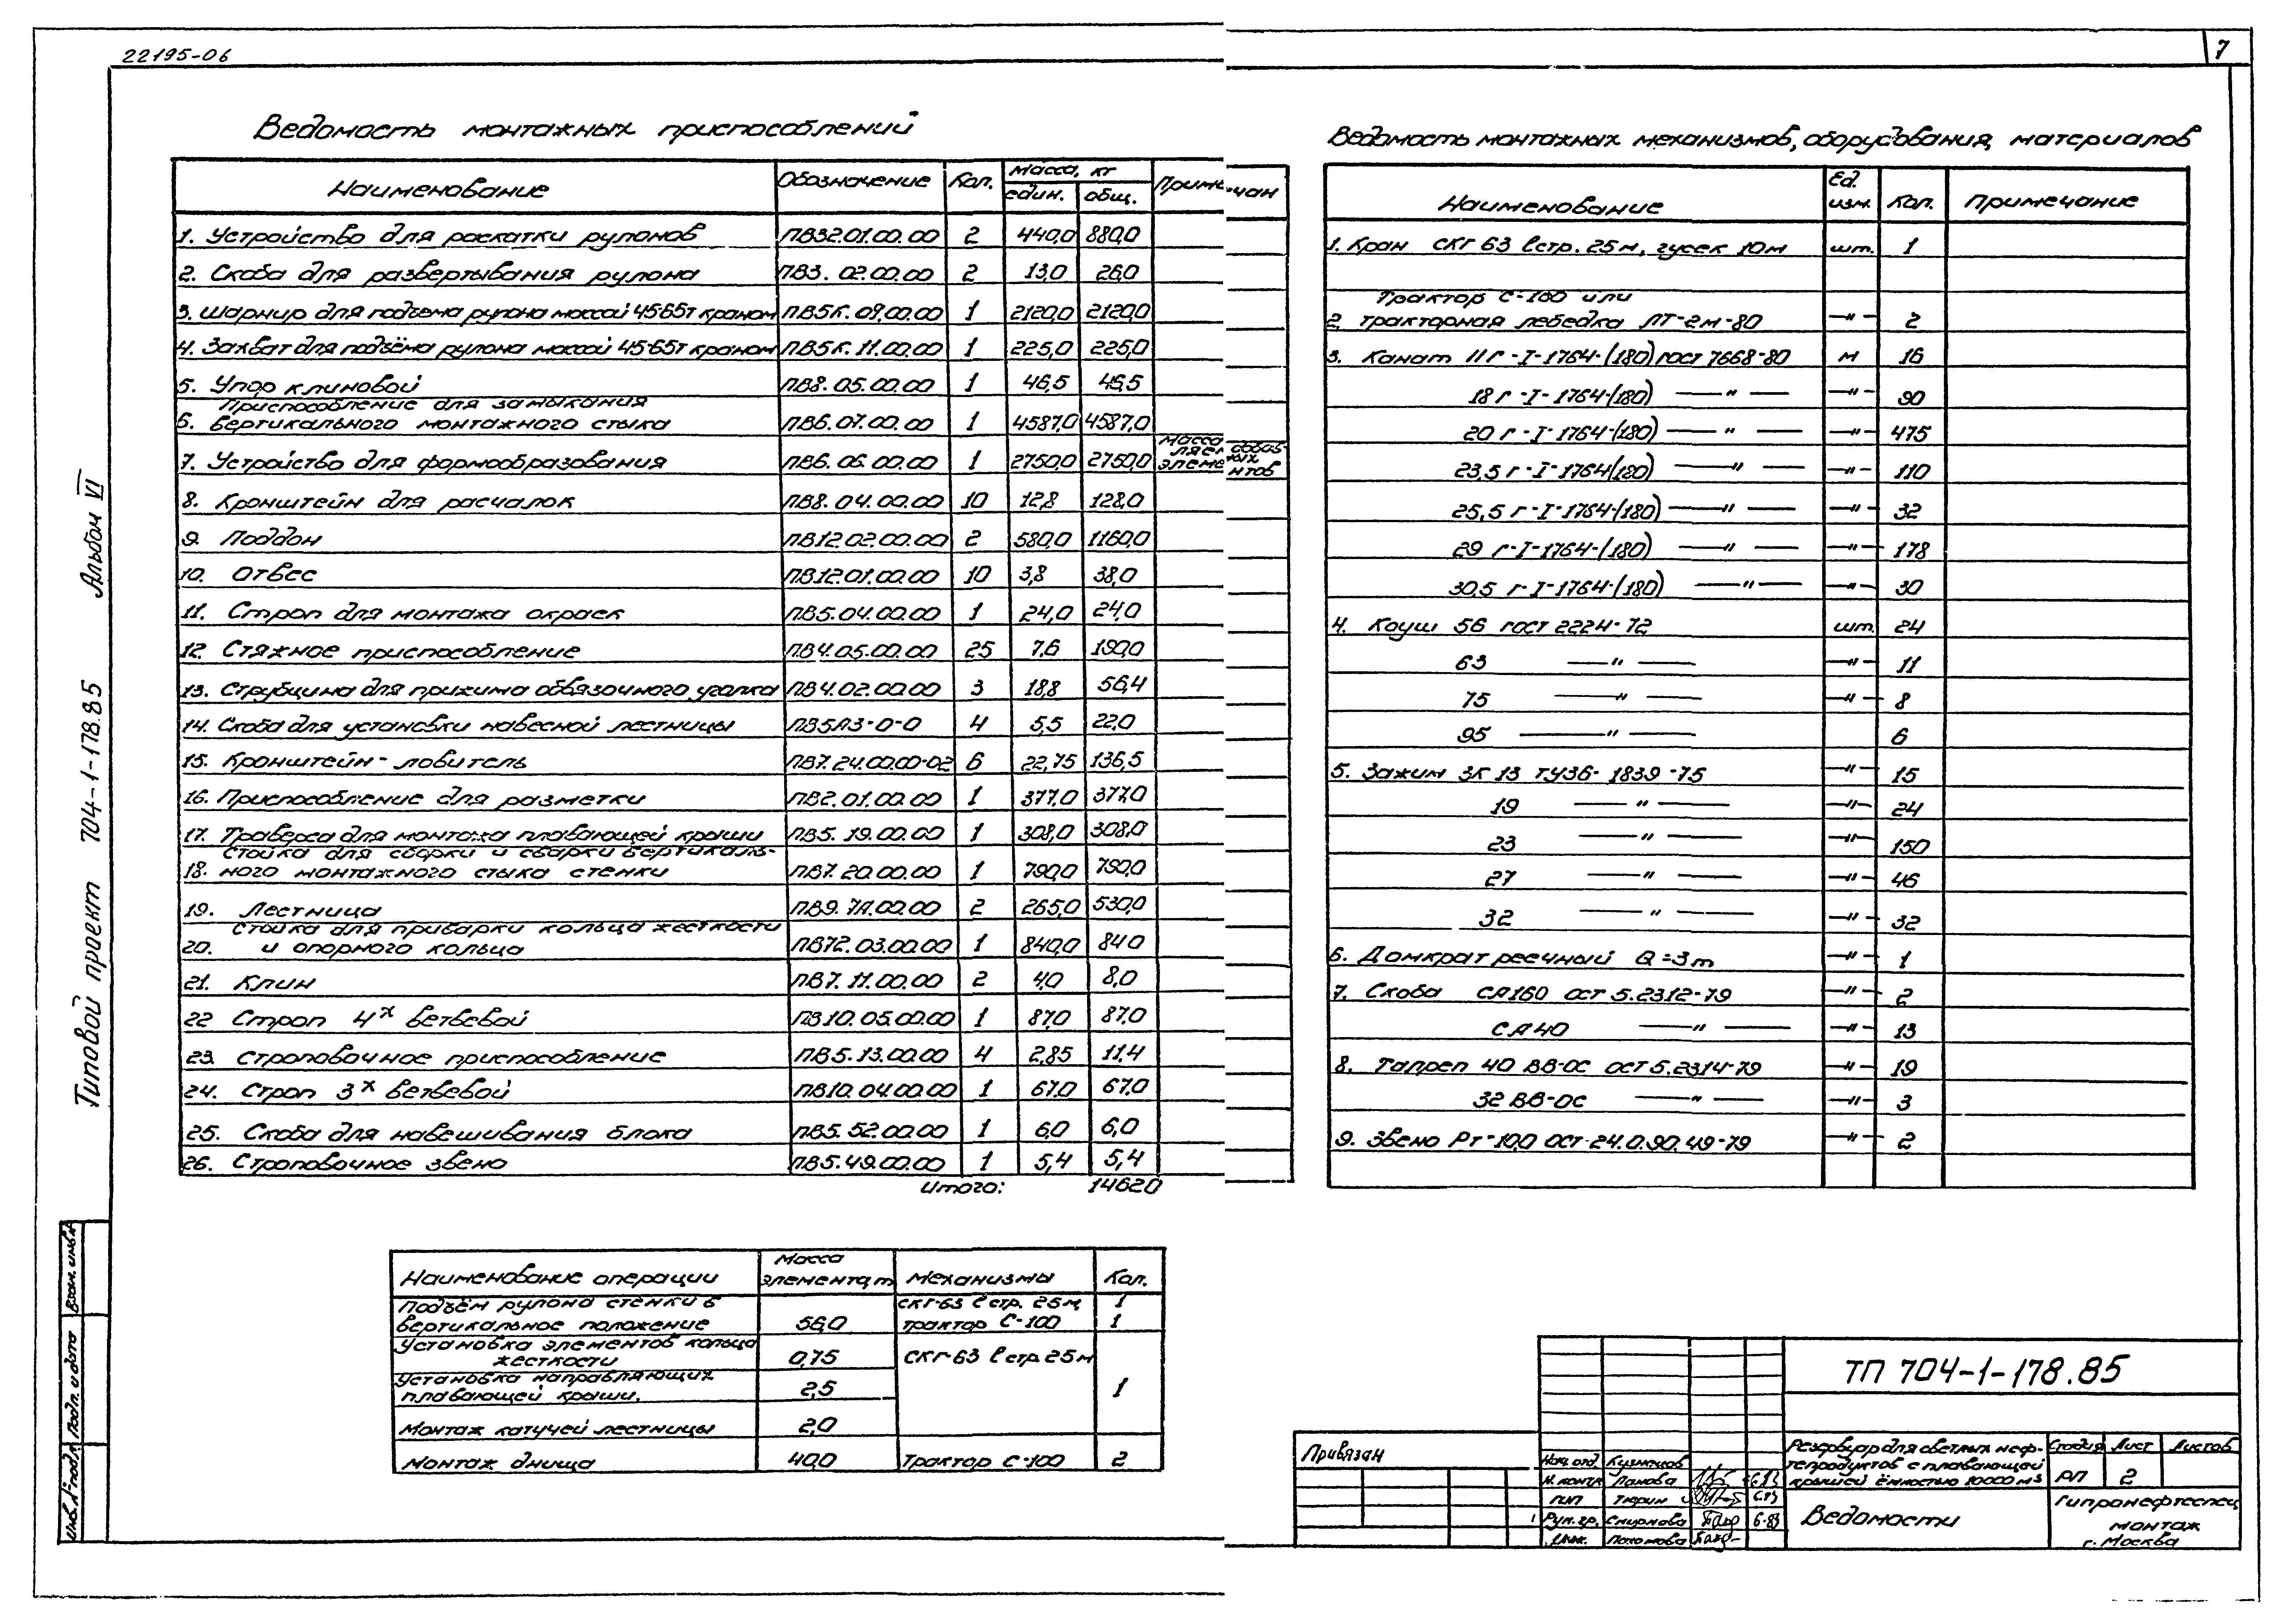 22195-06
7
Ведомость монтажных приспособлений
Наименование Обозначение Кол. Масса, кг Примечан
един. общ.
1. Устройство для раскатки рулонов ПВ32.01.00.00 2 440,0 880,0
2. Скоба для развертывания рулона ПВ3. 02.00.00 2 13,0 26,0
3. Шарнир для подъема рулона массой 45-65т краном ПВ5К. 09.00.00 1 2120,0 2120,0
4. Захват для подъёма рулона массой 45-65т краном ПВ5К. 11.00.00 1 225,0 225,0
5. Упор клиновой ПВ8. 05.00.00 1 46,5 46,5
Приспособление для замыкания
6. вертикального монтажного стыка ПВ6. 07.00.00 1 4587,0 4587,0
7. Устройство для формообразования ПВ6. 06.00.00 1 2750,0 2750,0 Масса элементов
8. Кронштейн для расчалок ПВ8. 04.00.00 10 12,8 128,0
9. Поддон ПВ12.02.00.00 2 580,0 1160,0
10. Отвес ПВ12.01.00.00 10 3,8 38,0
11. Строп для монтажа окраек ПВ5.04.00.00 1 24,0 24,0
12. Стяжное приспособление ПВ4.05.00.00 25 7,6 190,0
13. Струбцина для прижима обвязочного уголка ПВ4.02.00.00 3 18,8 56,4
14. Скоба для установки навесной лестницы ПВ5Л3-0-0 4 5,5 22,0
15. Кронштейн-ловитель ПВ7.24.00.00-02 6 22,75 136,5
16. Приспособление для разметки ПВ2.01.00.00 1 377,0 377,0
17. Траверса для монтажа плавающей крыши ПВ5. 19.00.00 1 308,0 308,0
Стойка для сборки и сварки вертикаль-
18. ного монтажного стыка стенки ПВ7. 20.00.00 1 790,0 790,0
19. Лестница ПВ9. 7Л.00.00 2 265,0 530,0
Стойка для приварки кольца жесткости
20. и опорного кольца ПВ72.03.00.00 1 840,0 840
21. Клин ПВ7. 11.00.00 2 4,0 8,0
22 Строп 4х ветвевой ПВ10. 05.00.00 1 87,0 87,0
23. Строповочное приспособление ПВ5. 13.00.00 4 2,85 11,4
24. Строп 3х ветвевой ПВ10. 04.00.00 1 67,0 67,0
25. Скоба для навешивания блока ПВ5. 52.00.00 1 6,0 6,0
26. Строповочное звено ПВ5.49.00.00 1 5,4 5,4
Итого: 14620
Ведомость монтажных механизмов, оборудования, материалов
Наименование Ед. изм. Кол. Примечание
1. Кран СКГ 63 lстр. 25м, гусек 10м шт. 1
Трактор С-100 или
2 тракторная лебедка ЛТ-2м-80 —"— 2
3. Канат 11Г-I-1764-(180) ГОСТ 7668-80 м 16
18Г-I-1764-(180) —"— —"— 90
20 Г-I-1764-(180) —"— —"— 475
23,5 Г-I-1764(180) —"— —"— 110
25,5 Г-I-1764-(180) —"— —"— 32
29 Г-I-1764-(180) —"— —"— 178
30,5 Г-I-1764-(180) —"— —"— 30
4. Коуш 56 ГОСТ 2224-72 шт. 24
63 —"— —"— 11
75 —"— —"— 8
95 —"— 6
5. Зажим ЗК 13 ТУ36-1839-75 —"— 15
19 —"— —"— 24
23 —"— —"— 150
27 —"— —"— 46
32 —"— —"— 32
6. Домкрат реечный Q=3т —"— 1
7. Скоба СА160 ОСТ 5.2312-79 —"— 2
СА40 —"— —"— 13
8. Талреп 40 ВВ-ОС ОСТ 5.2314-79 —"— 19
32 ВВ-ОС —"— —"— 3
9. Звено Рт-10,0 ОСТ-24.0.90.49-79 —"— 2
Наименование операции Масса элемента, т Механизмы Кол.
Подъём рулона стенки в СКГ-63 lстр. 25м, 1
вертикальное положение 56,0 трактор С-100 1
Установка элементов кольца
жесткости 0,75 СКГ-63 lстр 25м
Установка направляющих
плавающей крыши. 2,5 1
Монтаж катучей лестницы 2,0
Монтаж днища 40,0 Трактор С-100 2
Типовой проект 704-1-178.85 Альбом VI
Взам. инв.№
Подп. и дата
Инв.№подл
Привязан
ТП 704-1-178.85
Нач. отд. Кузнецов
Н. контр Панова 6.83
ГИП Тюрин 6.83
Рук. гр. Смирнова 6-83
Инж. Пахомова
Резервуар для светлых неф-
тепродуктов с плавающей
крышей ёмкостью 10000 м3
Стадия Лист Листов
РП 2
Ведомости
Гипронефтеспец
монтаж
г. Москва